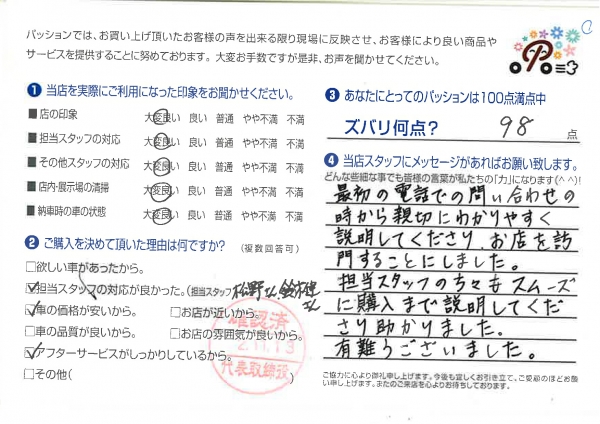 パッションでは、お買い上げ頂いたお客様の声を出来る限り現場に反映させ、お客様により良い商品や
サービスを提供することに努めております。大変お手数ですが是非、お声を聞かせてください。
❶ 当店を実際にご利用になった印象をお聞かせください。
■店の印象 大変良い 良い 普通 やや不満 不満
■担当スタッフの対応 大変良い 良い 普通 やや不満 不満
■その他スタッフの対応 大変良い 良い 普通 やや不満 不満
■店内・展示場の清掃 大変良い 良い 普通 やや不満 不満
■納車時の車の状態 大変良い 良い 普通 やや不満 不満
❷ ご購入を決めて頂いた理由は何ですか? (複数回答可)
□欲しい車があったから。
☑担当スタッフの対応が良かった。(担当スタッフ 松野さん 鈴木 さん
☑車の価格が安いから。 □お店が近いから。
□車の品質が良いから。 □お店の雰囲気が良いから。
☑アフターサービスがしっかりしているから。
□その他(
確認済
2.11.13
代表取締役
❸ あなたにとってのパッションは100点満点中
ズバリ何点? 98 点
❹ 当店スタッフにメッセージがあればお願い致します。
どんな些細な事でも皆様の言葉が私たちの「力」になります(^^)!
最初の電話での問い合わせの
時から親切にわかりやすく
説明してくださり、お店を訪
門することにしました。
担当スタッフの方々もスムーズ
に購入まで説明してくだ
さり助かりました。
有難うございました。
ご協力に心より御礼申し上げます。今後も宜しくお引き立て、ご愛顧のほどお願
い申し上げます。またのご来店を心よりお待ちしております。